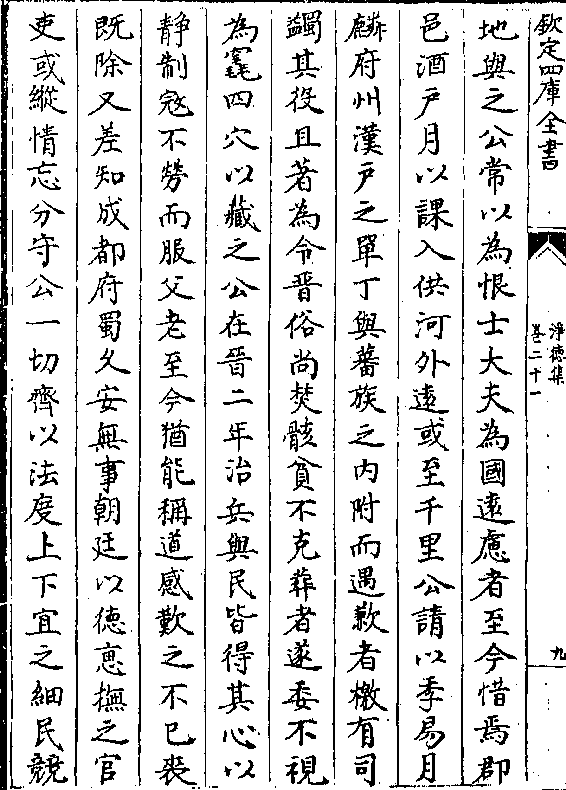 欽定四庫全書
淨德集
卷二十一
九
地與之公常以為恨士大夫為國遠慮者至今惜焉郡
邑酒户月以課入供河外遠或至千里公請以季易月
麟府州漢户之單丁與蕃族之内附而遇歉者檄有司
蠲其役且著為令晉俗尚焚骸貧不克葬者遂委不視
為窀四穴以藏之公在晉二年治兵與民皆得其心以
静制宼不勞而服父老至今猶能稱道感歎之不已喪
既除又差知成都府蜀乆安無事朝廷以德惠撫之官
吏或縱情忘分守公一切齊以法度上下宜之細民競